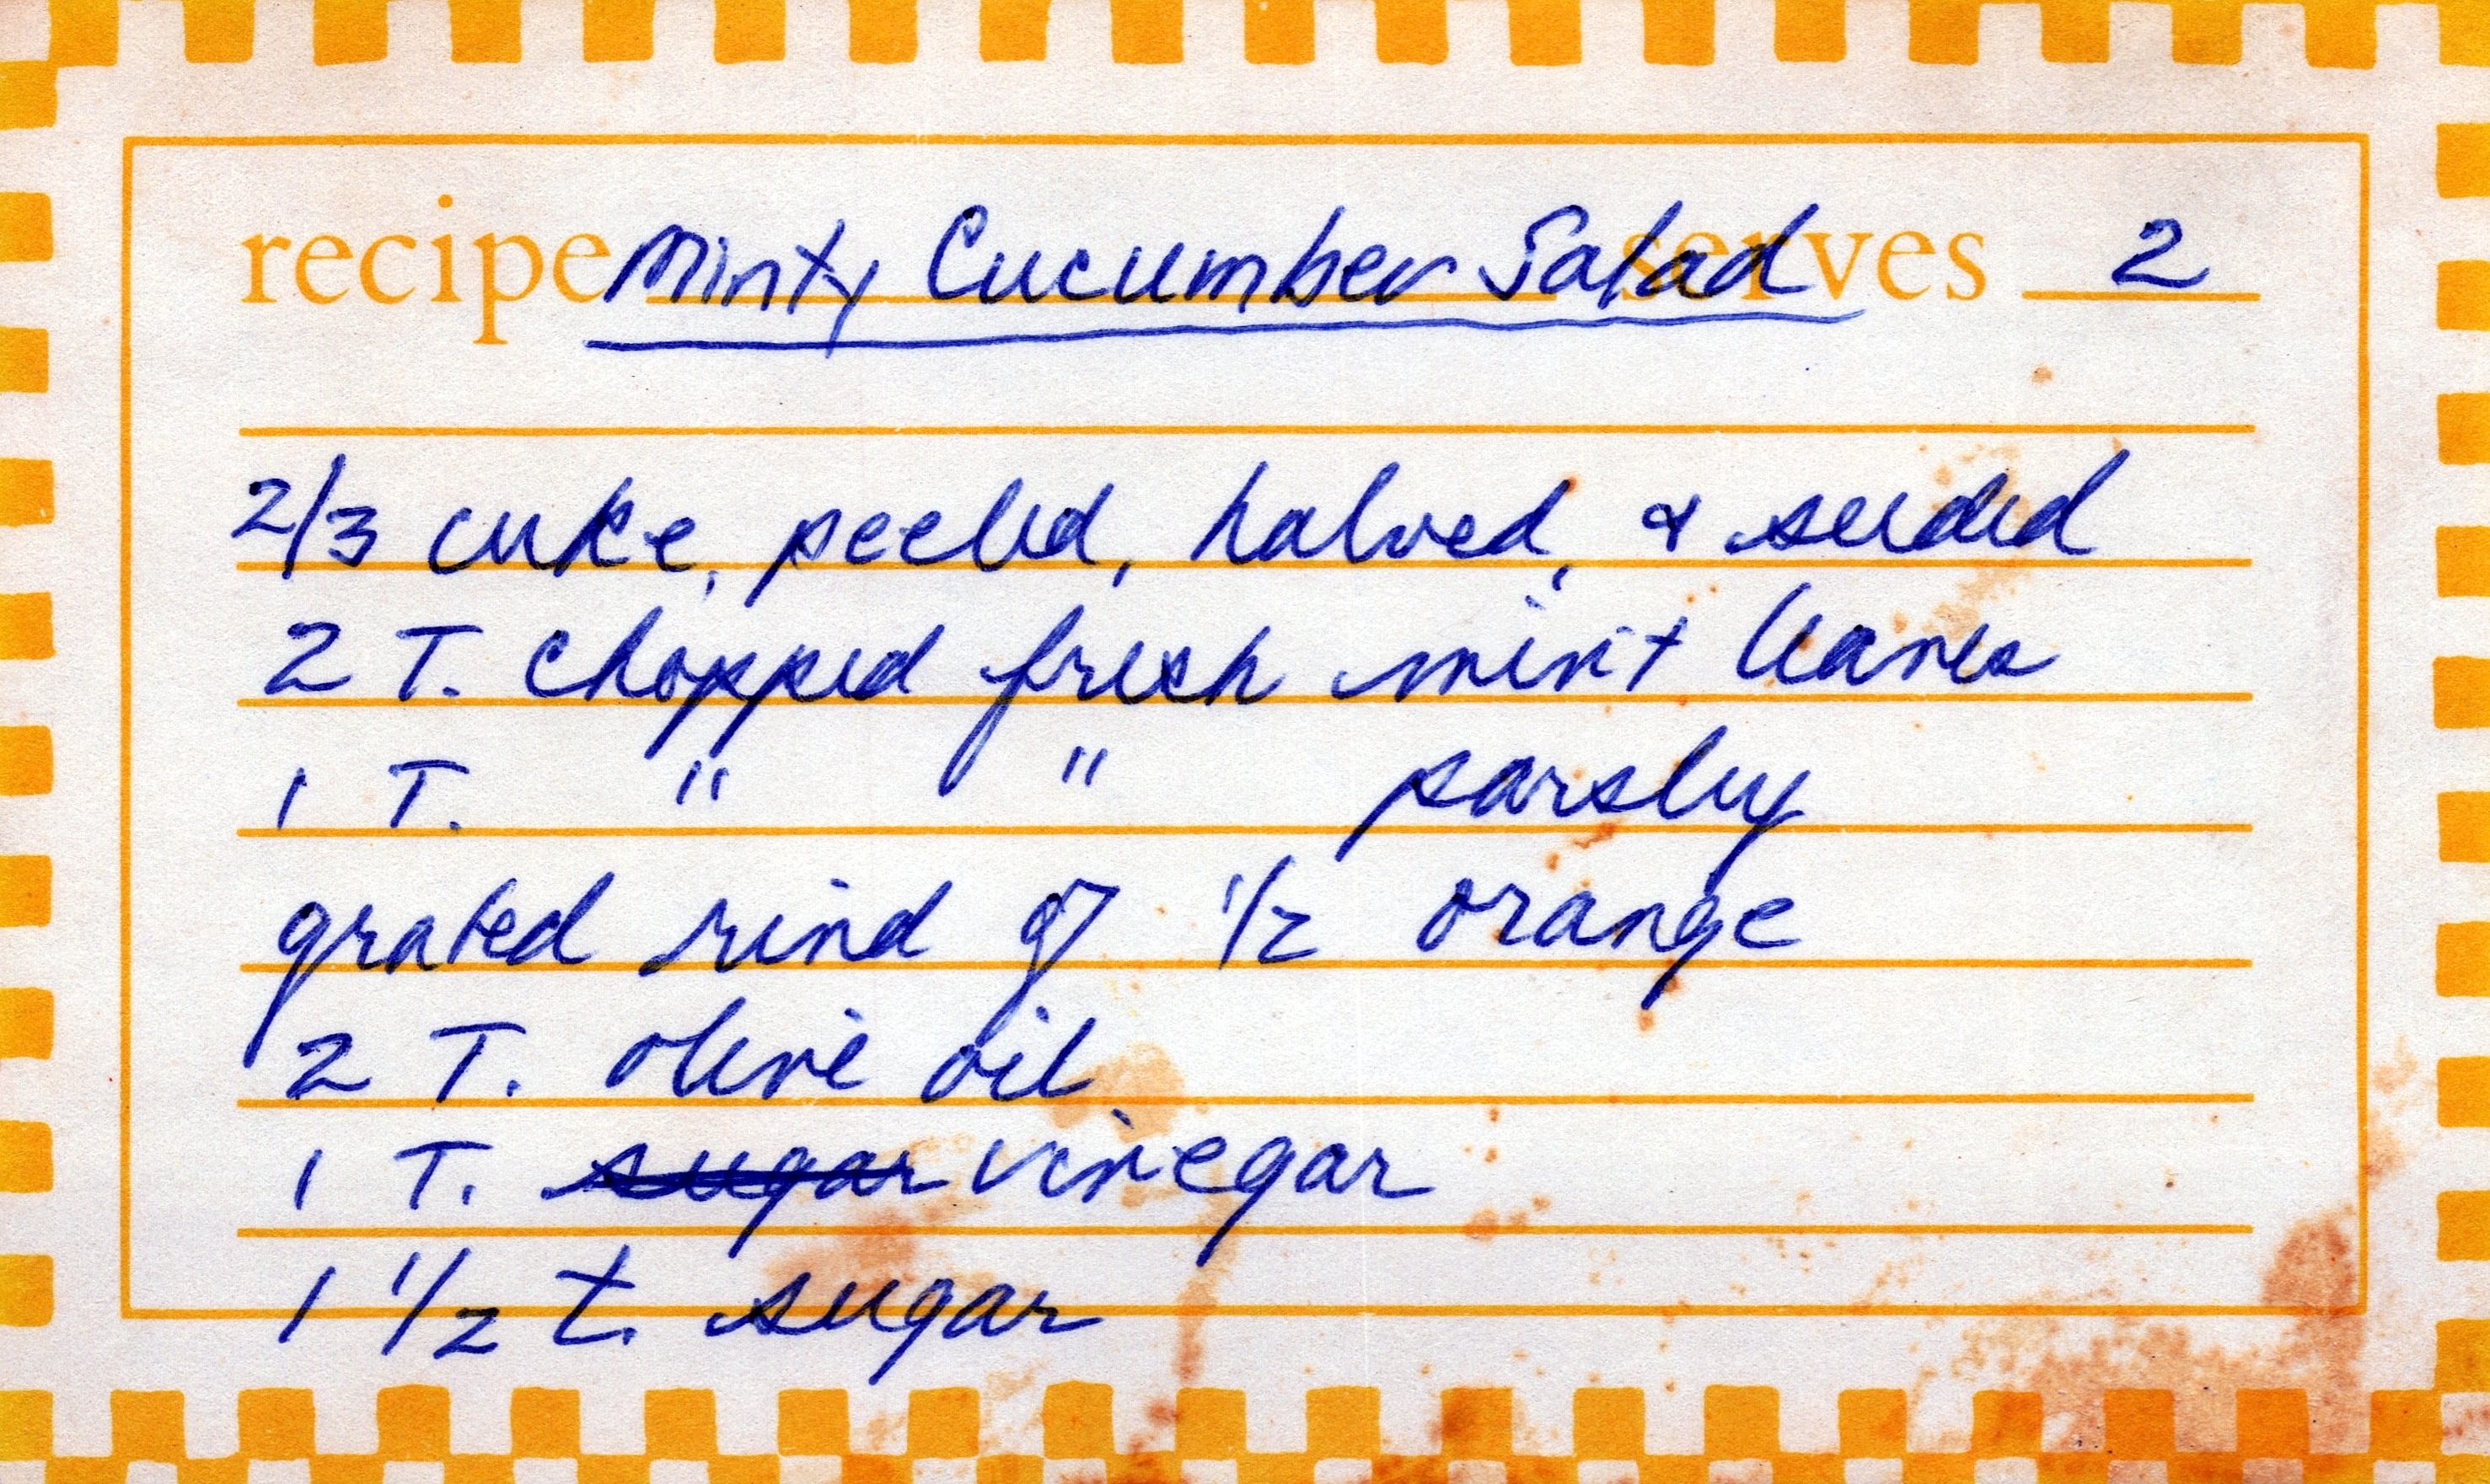 recipe Minty Cucumber Salad serves 2
2/3 cuke, peeled, halved, & seeded
2 T. chopped fresh mint leaves
1 T. " " parsley
grated rind of 1/2 orange
2 T. olive oil
1 T. sugar vinegar
1 1/2 t. sugar